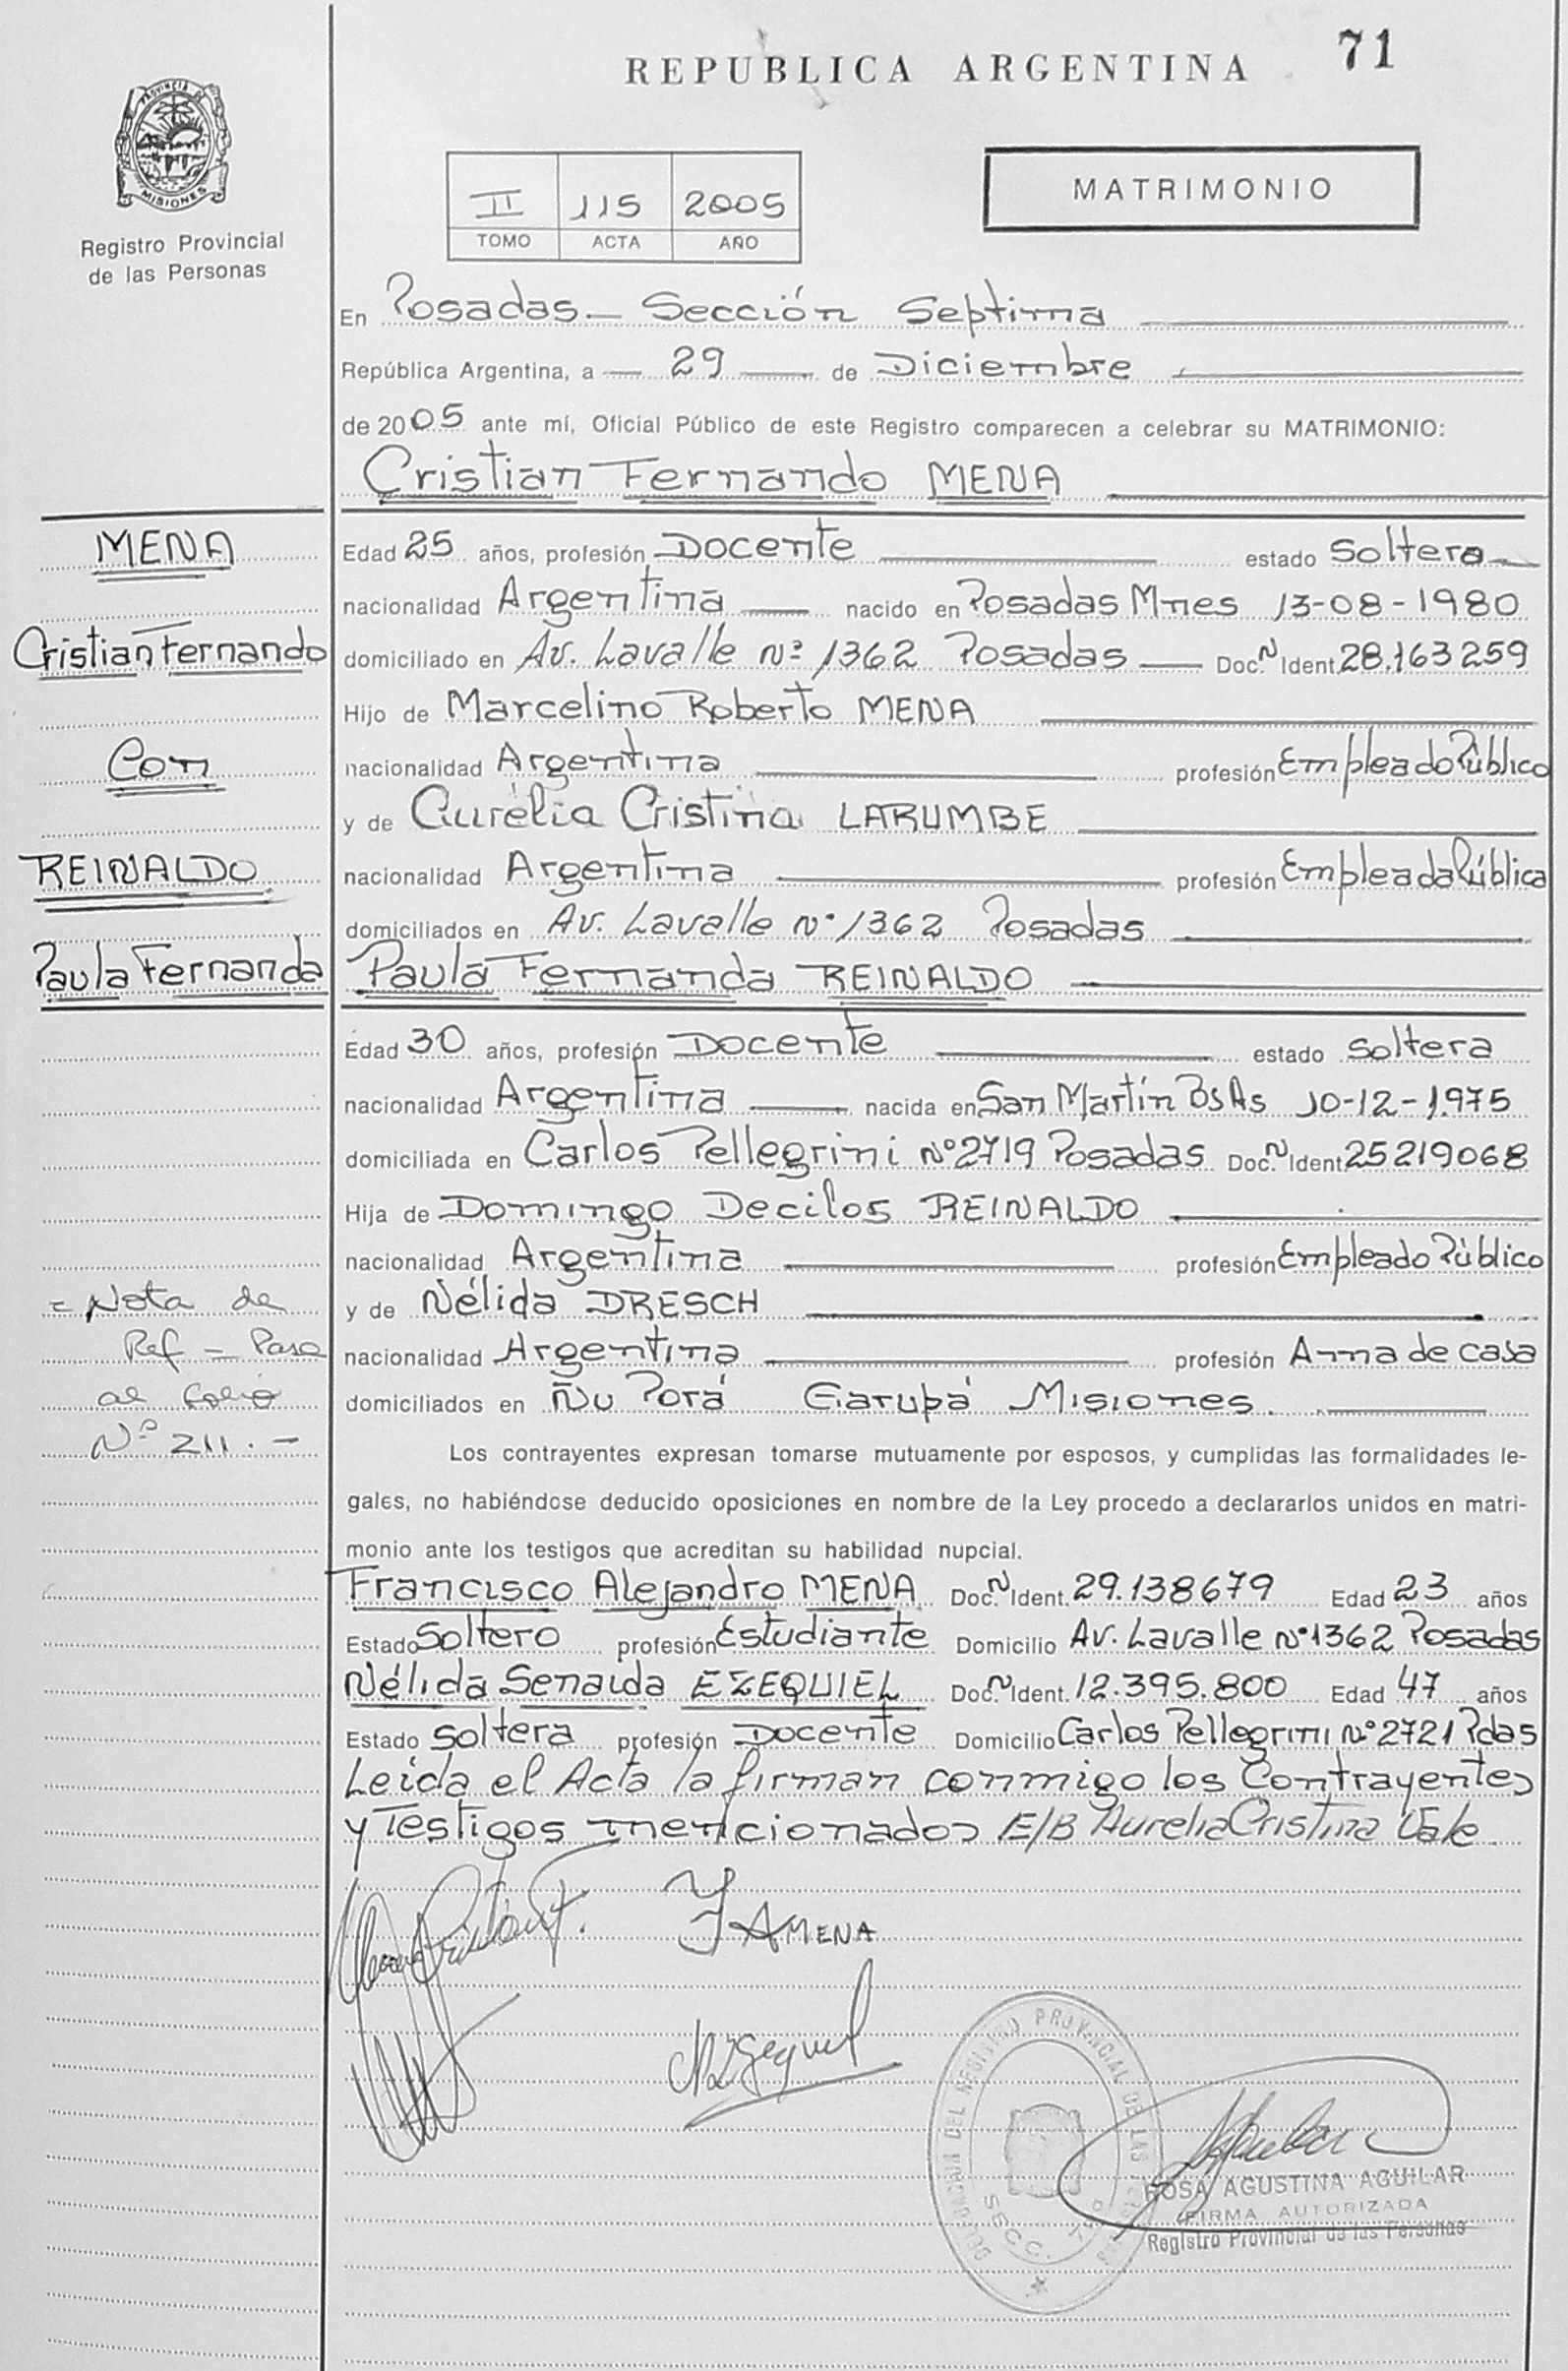 REPUBLICA ARGENTINA 71
PROVINCIA DE
MISIONES
Registro Provincial
de las Personas
II 115 2005
TOMO ACTA AÑO
MATRIMONIO
En Posadas - Sección Septima
República Argentina, a - 29 - de Diciembre
de 2005 ante mí, Oficial Público de este Registro comparecen a celebrar su MATRIMONIO:
Cristian Fernando MENA
MENA
Cristian Fernando
Con
REINALDO
Paula Fernanda
Edad 25 años, profesión Docente estado Soltero
nacionalidad Argentina nacido en Posadas Mnes 13-08-1980
domiciliado en Av. Lavalle Nº 1362 Posadas Doc. N Ident. 28.163259
Hijo de Marcelino Roberto MENA
nacionalidad Argentina profesión Empleado Público
y de Aurélia Cristina LARUMBE
nacionalidad Argentina profesión Empleada Pública
domiciliados en Av. Lavalle Nº 1362 Posadas
Paula Fernanda REINALDO
Edad 30 años, profesión Docente estado soltera
nacionalidad Argentina nacida en San Martín Bs As 10-12-1.975
domiciliada en Carlos Pellegrini Nº 2719 Posadas Doc. N Ident. 25219068
Hija de Domingo Decilos REINALDO
nacionalidad Argentina profesión Empleado Público
y de Nélida DRESCH
nacionalidad Argentina profesión Ama de casa
domiciliados en Ñu Porá Garupá Misiones.
= Nota de
Ref - Pasa
al folio
Nº 211.-
Los contrayentes expresan tomarse mutuamente por esposos, y cumplidas las formalidades le-
gales, no habiéndose deducido oposiciones en nombre de la Ley procedo a declararlos unidos en matri-
monio ante los testigos que acreditan su habilidad nupcial.
Francisco Alejandro MENA Doc. N Ident. 29.138679 Edad 23 años
Estado Soltero profesión Estudiante Domicilio Av. Lavalle Nº 1362 Posadas
Nélida Senaida EZEQUIEL Doc. N Ident. 12.395.800 Edad 47 años
Estado soltera profesión Docente Domicilio Carlos Pellegrini Nº 2721 Pdas
Leída el Acta la firman conmigo los Contrayentes
y Testigos mencionados E/B Aurelia Cristina Vale.
MENA
DELEGACION DEL REGISTRO PROVINCIAL DE LAS
SECC. 7º
ROSA AGUSTINA AGUILAR
FIRMA AUTORIZADA
Registro Provincial de las Personas